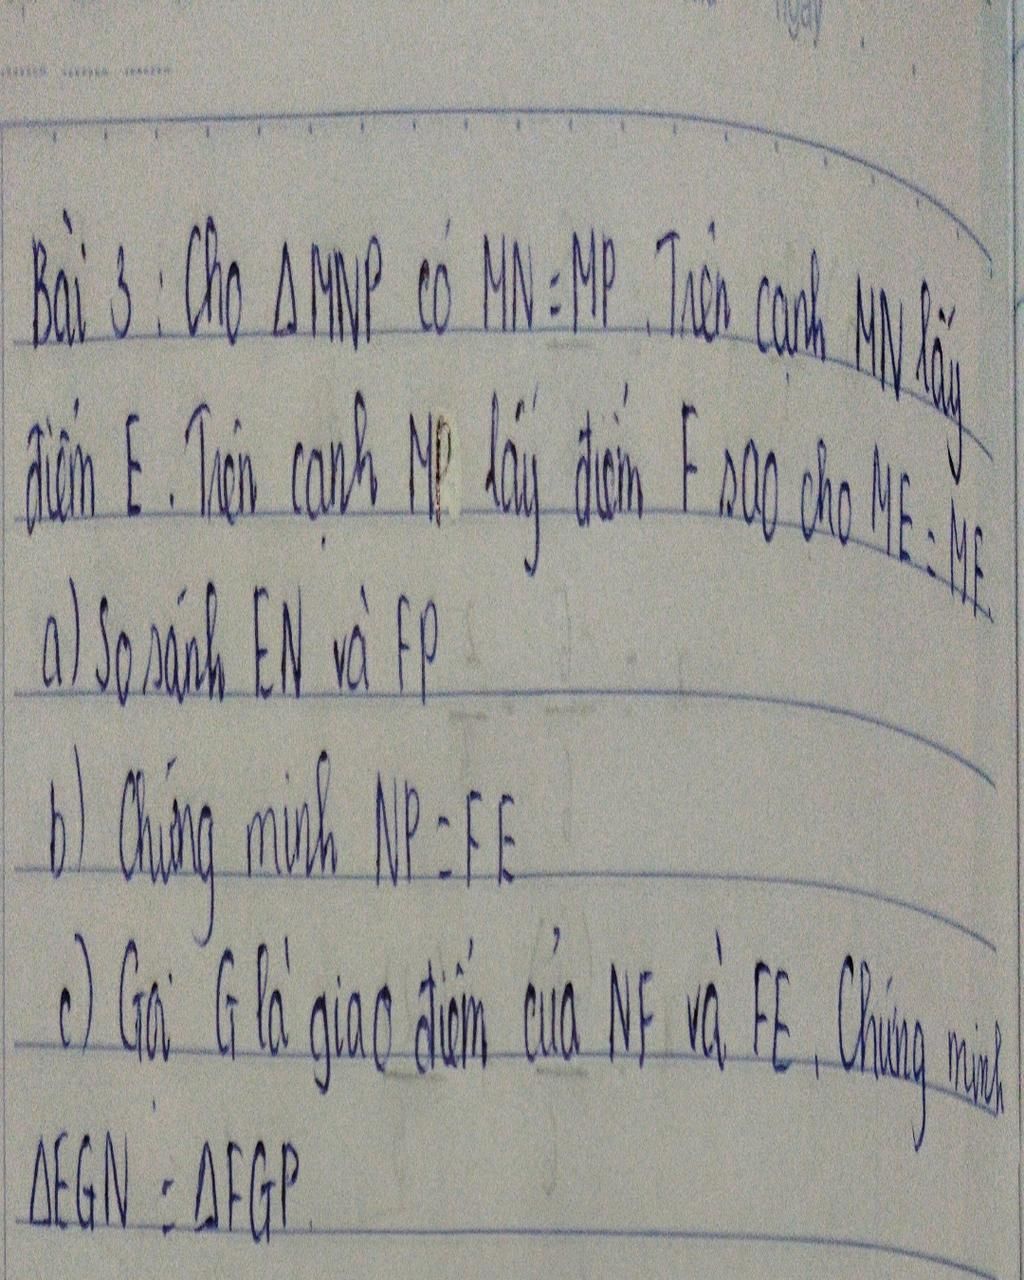 ngày
Bài 3 : Cho ΔMNP có MN = MP. Trên cạnh MN lấy
điểm E. Trên cạnh MP lấy điểm F sao cho ME = MF
a) So sánh EN và FP
b) Chứng minh NP = FE
c) Gọi G là giao điểm của NF và FE. Chứng minh
ΔEGN = ΔFGP.